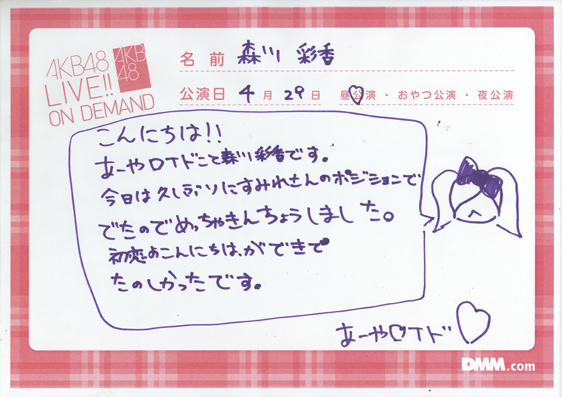 AKB48
LIVE!!
ON DEMAND
AKB
48
名前 森川 彩香
公演日 4月29日 昼公演・おやつ公演・夜公演
こんにちは!!
あーやロイドこと森川彩香です。
今日は久しぶりにすみれさんのポジションで
でたのでめっちゃきんちょうしました。
初恋よこんにちは、ができて
たのしかったです。
あーやロイド♡
DMM.com